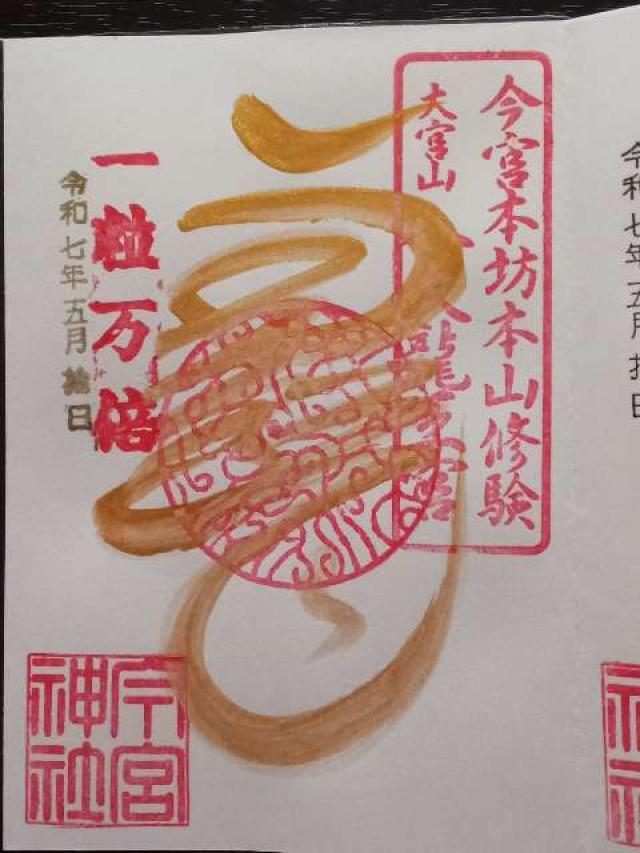 今宮本坊本山修験
大宮山 龍王宮
一粒万倍
令和七年五月拾日
今宮
神社
令和七年五月拾日